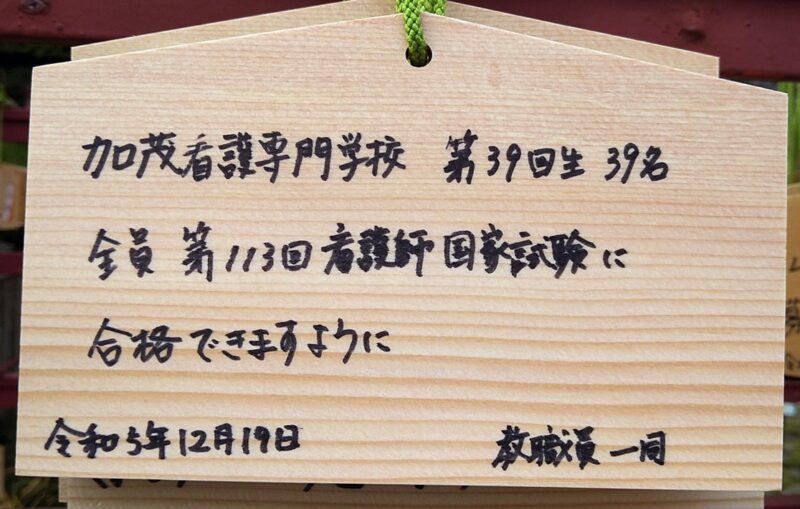 加茂看護専門学校 第39回生 39名
全員 第113回看護師国家試験に
合格できますように
令和5年12月19日 教職員一同